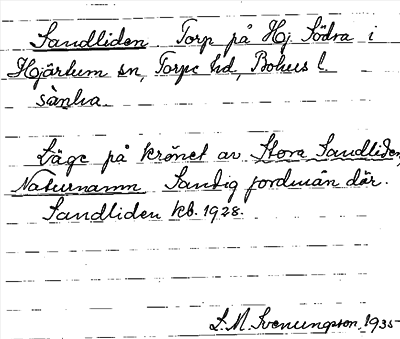 Sandliden. Torp på Hj. Södra i
Hjärtum sn, Torpe hd, Bohus l.
sànlıa.
Läge på krönet av Stora Sandliden,
Naturnamn Sandig jordmån där.
Sandliden kb. 1928.
S. M. Svenungsson, 1935